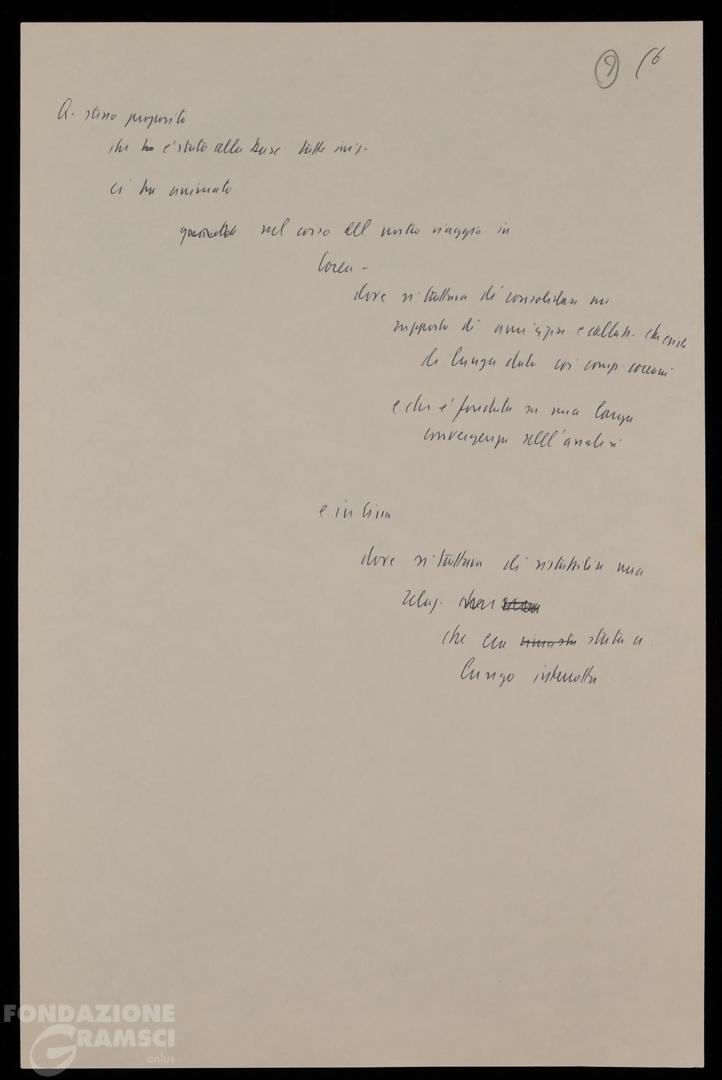 9 16
Q. stesso proposito
che ha è stato alla base delle iniz.
ci ha animato
nel corso del nostro viaggio in
Corea -
dove si trattava di consolidare un
rapporto di amicizia e collab. che esiste
da lunga data coi comp. coreani
e che è fondato su una larga
convergenza nell'analisi
e in Cina
dove si trattava di ristabilire una
relaz.
che era rimasta stata a
lungo interrotta
FONDAZIONE
GRAMSCI
onlus